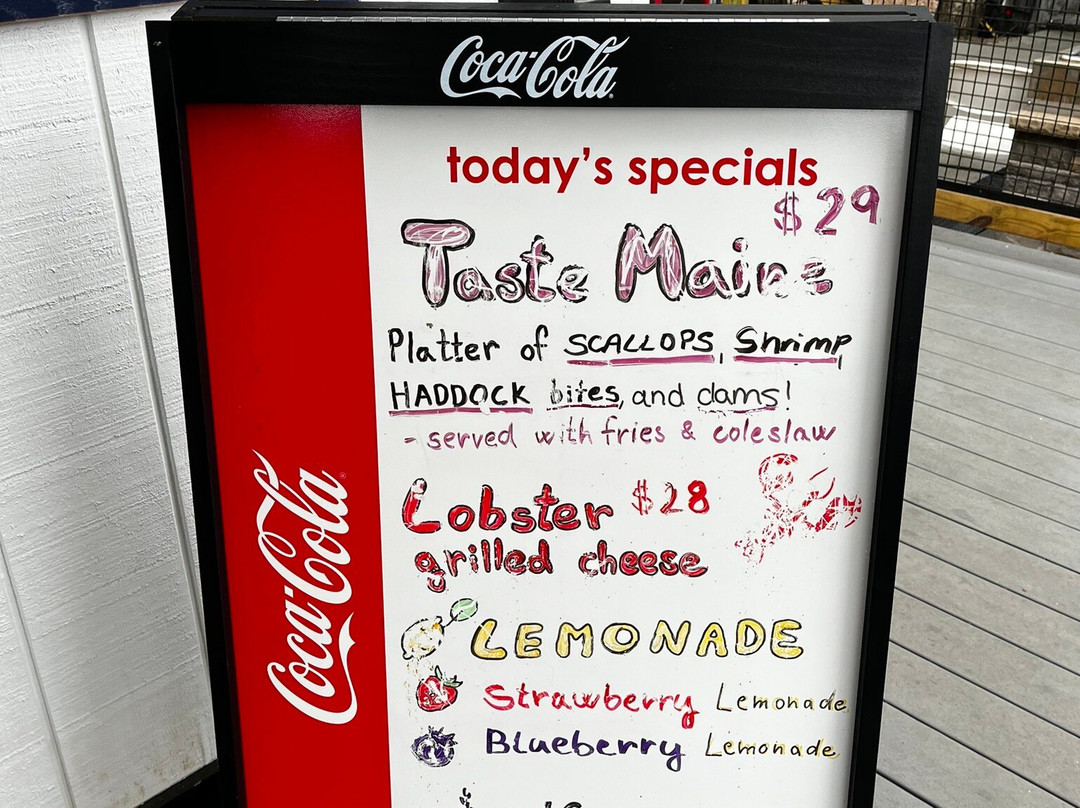 Coca-Cola
today's specials
$29
Taste Maine
Platter of SCALLOPS, Shrimp,
HADDOCK bites, and clams!
- served with fries & coleslaw
Lobster $28
grilled cheese
LEMONADE
Strawberry Lemonade
Blueberry Lemonade
Coca-Cola